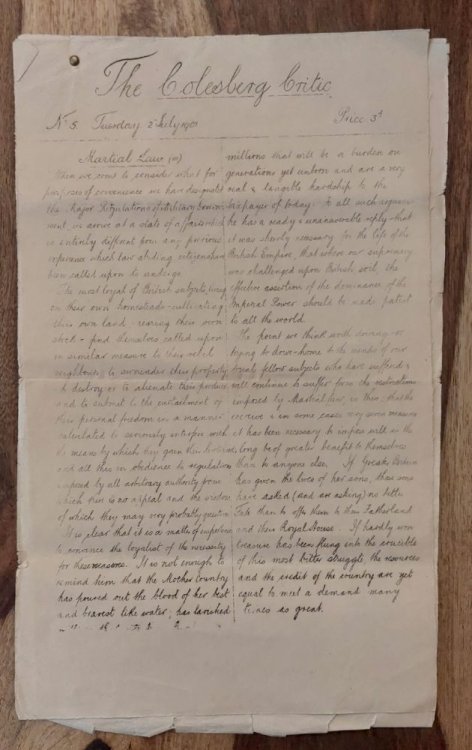 The Colesberg Critic
No 5. Tuesday. 2 July 1901
Price 3d
Martial Law (III)
When we come to consider what for
purposes of convenience we have designated
the Major Regulations of
we arrive at a state of affairs which
is entirely different from any previous
experience which law abiding citizens have
been called upon to undergo.
The most loyal of British subjects, living
on their own homesteads - cultivating
their own land - rearing their own
stock - find themselves called upon
in similar measure to their rebel
neighbours to surrender their property
to destroy or to alienate their produce
and to submit to the curtailment of
their personal freedom in a manner
calculated to seriously interfere with
the means by which they gain their livelihood,
and all this in obedience to regulations
imposed by all arbitrary authority from
which there is no appeal and the wisdom
of which they may very probably question
It is clear that it is a matter of importance
to convince the loyalist of the necessity
for these measures. It is not enough to
remind him that the Mother Country
has poured out the blood of her best
and bravest like water; has lavished
millions that will be a burden on
generations yet unborn and are a very
real & tangible hardship to the
taxpayer of today. To all such argument
he has a ready & unanswerable reply - that
it was absolutely necessary for the life of the
British Empire, that where our supremacy
was challenged upon British soil, the
effective assertion of the dominance of the
Imperial Power should be made patent
to all the world.
The point we think worth driving - or
trying to drive - home to the minds of our
loyal fellow subjects who have suffered &
will continue to suffer from the restrictions
imposed by Martial Law, is this; that the
& in some cases very severe measures
it has been necessary to impose will in the
long be of greater benefit to themselves
than to anyone else. If Greater Britain
has given the lives of her sons, those sons
have asked (and are asking) no better
fate than to offer them to their Fatherland
and their Royal House. If hardly won
treasure has been flung into the crucible
of this most bitter struggle, the resources
and the credit of the country are yet
equal to meet a demand many
times as great.